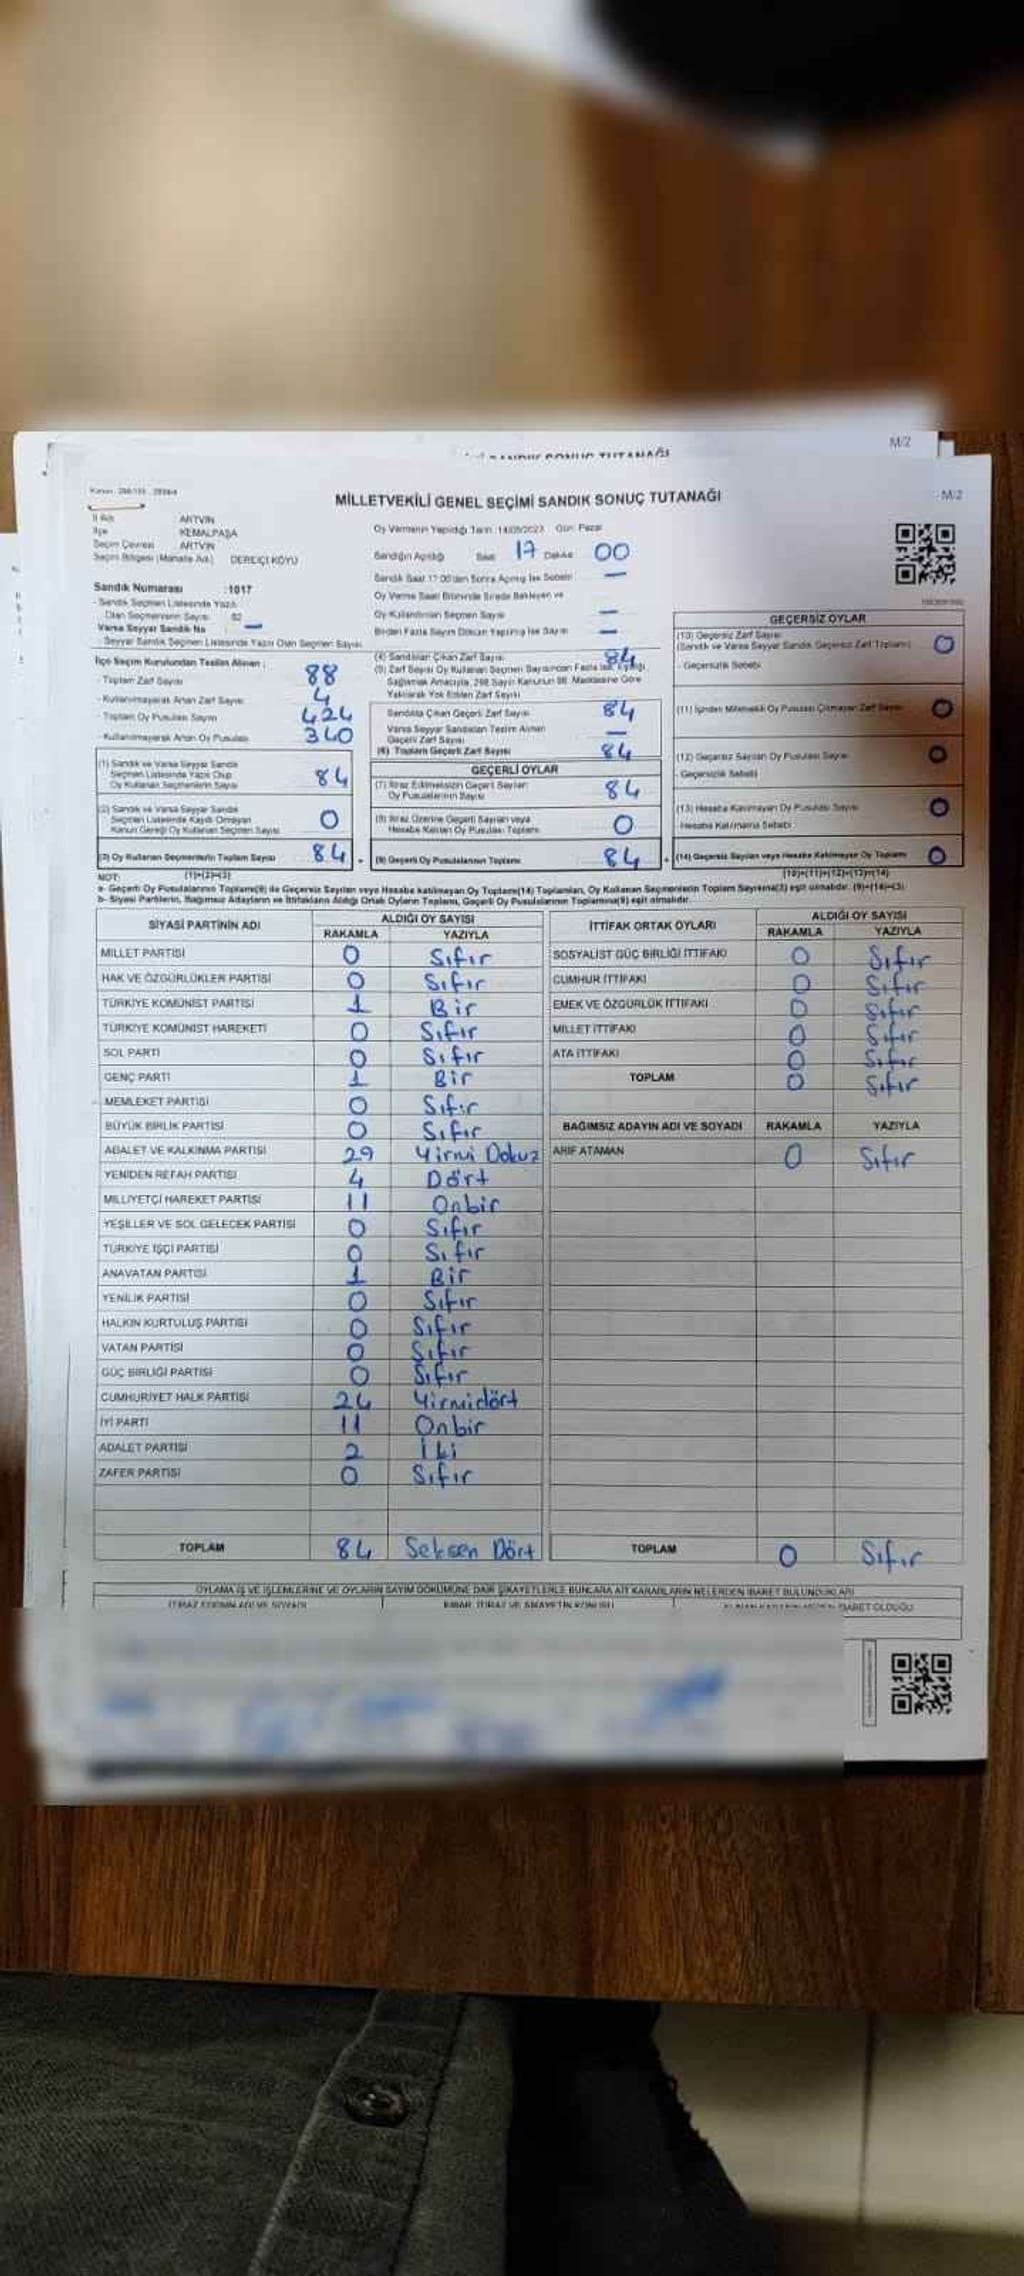 M/2
SANDIK SONUÇ TUTANAĞI
MİLLETVEKİLİ GENEL SEÇİMİ SANDIK SONUÇ TUTANAĞI
M/2
İl Adı : ARTVİN
İlçe : KEMALPAŞA
Seçim Çevresi : ARTVİN
Seçim Bölgesi (Mahalle Adı) : DEREİÇİ KÖYÜ
Oy Vermenin Yapıldığı Tarih : 14/05/2023 Gün: Pazar
Sandığın Açıldığı Saat 17 Dakika 00
Sandık Saat 17:00'den Sonra Açılmış İse Sebebi —
Oy Verme Saati Bitiminde Sırada Bekleyen ve
Oy Kullandırılan Seçmen Sayısı —
Birden Fazla Sayım Döküm Yapılmış İse Sayısı —
Sandık Numarası : 1017
- Sandık Seçmen Listesinde Yazılı
Olan Seçmenlerin Sayısı
Varsa Seyyar Sandık No —
Seyyar Sandık Seçmen Listesinde Yazılı Olan Seçmen Sayısı
İlçe Seçim Kurulundan Teslim Alınan :
- Toplam Zarf Sayısı 88
- Kullanılmayarak Artan Zarf Sayısı 4
- Toplam Oy Pusulası Sayısı 424
- Kullanılmayarak Artan Oy Pusulası 340
(1) Sandık ve Varsa Seyyar Sandık
Seçmen Listesinde Yazılı Olup
Oy Kullanan Seçmenlerin Sayısı 84
(2) Sandık ve Varsa Seyyar Sandık
Seçmen Listesinde Kaydı Olmayan
Kanun Gereği Oy Kullanan Seçmen Sayısı 0
(3) Oy Kullanan Seçmenlerin Toplam Sayısı 84
(1)+(2)=(3)
(4) Sandıktan Çıkan Zarf Sayısı 84
(5) Zarf Sayısı Oy Kullanan Seçmen Sayısından Fazla ise, Eşitliği
Sağlamak Amacıyla, 298 Sayılı Kanunun 98. Maddesine Göre
Yakılarak Yok Edilen Zarf Sayısı
Sandıkta Çıkan Geçerli Zarf Sayısı 84
Varsa Seyyar Sandıktan Teslim Alınan
Geçerli Zarf Sayısı —
(6) Toplam Geçerli Zarf Sayısı 84
GEÇERLİ OYLAR
(7) İtiraz Edilmeksizin Geçerli Sayılan
Oy Pusulalarının Sayısı 84
(8) İtiraz Üzerine Geçerli Sayılan veya
Hesaba Katılan Oy Pusulası Toplamı 0
(9) Geçerli Oy Pusulalarının Toplamı 84
GEÇERSİZ OYLAR
(10) Geçersiz Zarf Sayısı
(Sandık ve Varsa Seyyar Sandık Geçersiz Zarf Toplamı) 0
- Geçersizlik Sebebi
(11) İçinden Milletvekili Oy Pusulası Çıkmayan Zarf Sayısı 0
(12) Geçersiz Sayılan Oy Pusulası Sayısı 0
- Geçersizlik Sebebi
(13) Hesaba Katılmayan Oy Pusulası Sayısı 0
- Hesaba Katılmama Sebebi
(14) Geçersiz Sayılan veya Hesaba Katılmayan Oy Toplamı 0
(10)+(11)+(12)+(13)=(14)
NOT:
a- Geçerli Oy Pusulalarının Toplamı(9) ile Geçersiz Sayılan veya Hesaba katılmayan Oy Toplamı(14) Toplamları, Oy Kullanan Seçmenlerin Toplam Sayısına(3) eşit olmalıdır. (9)+(14)=(3)
b- Siyasi Partilerin, Bağımsız Adayların ve İttifakların Aldığı Ortak Oyların Toplamı, Geçerli Oy Pusulalarının Toplamına(9) eşit olmalıdır.
SİYASİ PARTİNİN ADI ALDIĞI OY SAYISI
RAKAMLA YAZIYLA
MİLLET PARTİSİ 0 Sıfır
HAK VE ÖZGÜRLÜKLER PARTİSİ 0 Sıfır
TÜRKİYE KOMÜNİST PARTİSİ 1 Bir
TÜRKİYE KOMÜNİST HAREKETİ 0 Sıfır
SOL PARTİ 0 Sıfır
GENÇ PARTİ 1 Bir
MEMLEKET PARTİSİ 0 Sıfır
BÜYÜK BİRLİK PARTİSİ 0 Sıfır
ADALET VE KALKINMA PARTİSİ 29 Yirmi Dokuz
YENİDEN REFAH PARTİSİ 4 Dört
MİLLİYETÇİ HAREKET PARTİSİ 11 Onbir
YEŞİLLER VE SOL GELECEK PARTİSİ 0 Sıfır
TÜRKİYE İŞÇİ PARTİSİ 0 Sıfır
ANAVATAN PARTİSİ 1 Bir
YENİLİK PARTİSİ 0 Sıfır
HALKIN KURTULUŞ PARTİSİ 0 Sıfır
VATAN PARTİSİ 0 Sıfır
GÜÇ BİRLİĞİ PARTİSİ 0 Sıfır
CUMHURİYET HALK PARTİSİ 24 Yirmidört
İYİ PARTİ 11 Onbir
ADALET PARTİSİ 2 İki
ZAFER PARTİSİ 0 Sıfır
TOPLAM 84 Seksen Dört
İTTİFAK ORTAK OYLARI ALDIĞI OY SAYISI
RAKAMLA YAZIYLA
SOSYALİST GÜÇ BİRLİĞİ İTTİFAKI 0 Sıfır
CUMHUR İTTİFAKI 0 Sıfır
EMEK VE ÖZGÜRLÜK İTTİFAKI 0 Sıfır
MİLLET İTTİFAKI 0 Sıfır
ATA İTTİFAKI 0 Sıfır
TOPLAM 0 Sıfır
BAĞIMSIZ ADAYIN ADI VE SOYADI RAKAMLA YAZIYLA
ARİF ATAMAN 0 Sıfır
TOPLAM 0 Sıfır
OYLAMA İŞ VE İŞLEMLERİNE VE OYLARIN SAYIM DÖKÜMÜNE DAİR ŞİKAYETLERLE BUNLARA AİT KARARLARIN NELERDEN İBARET BULUNDUKLARI